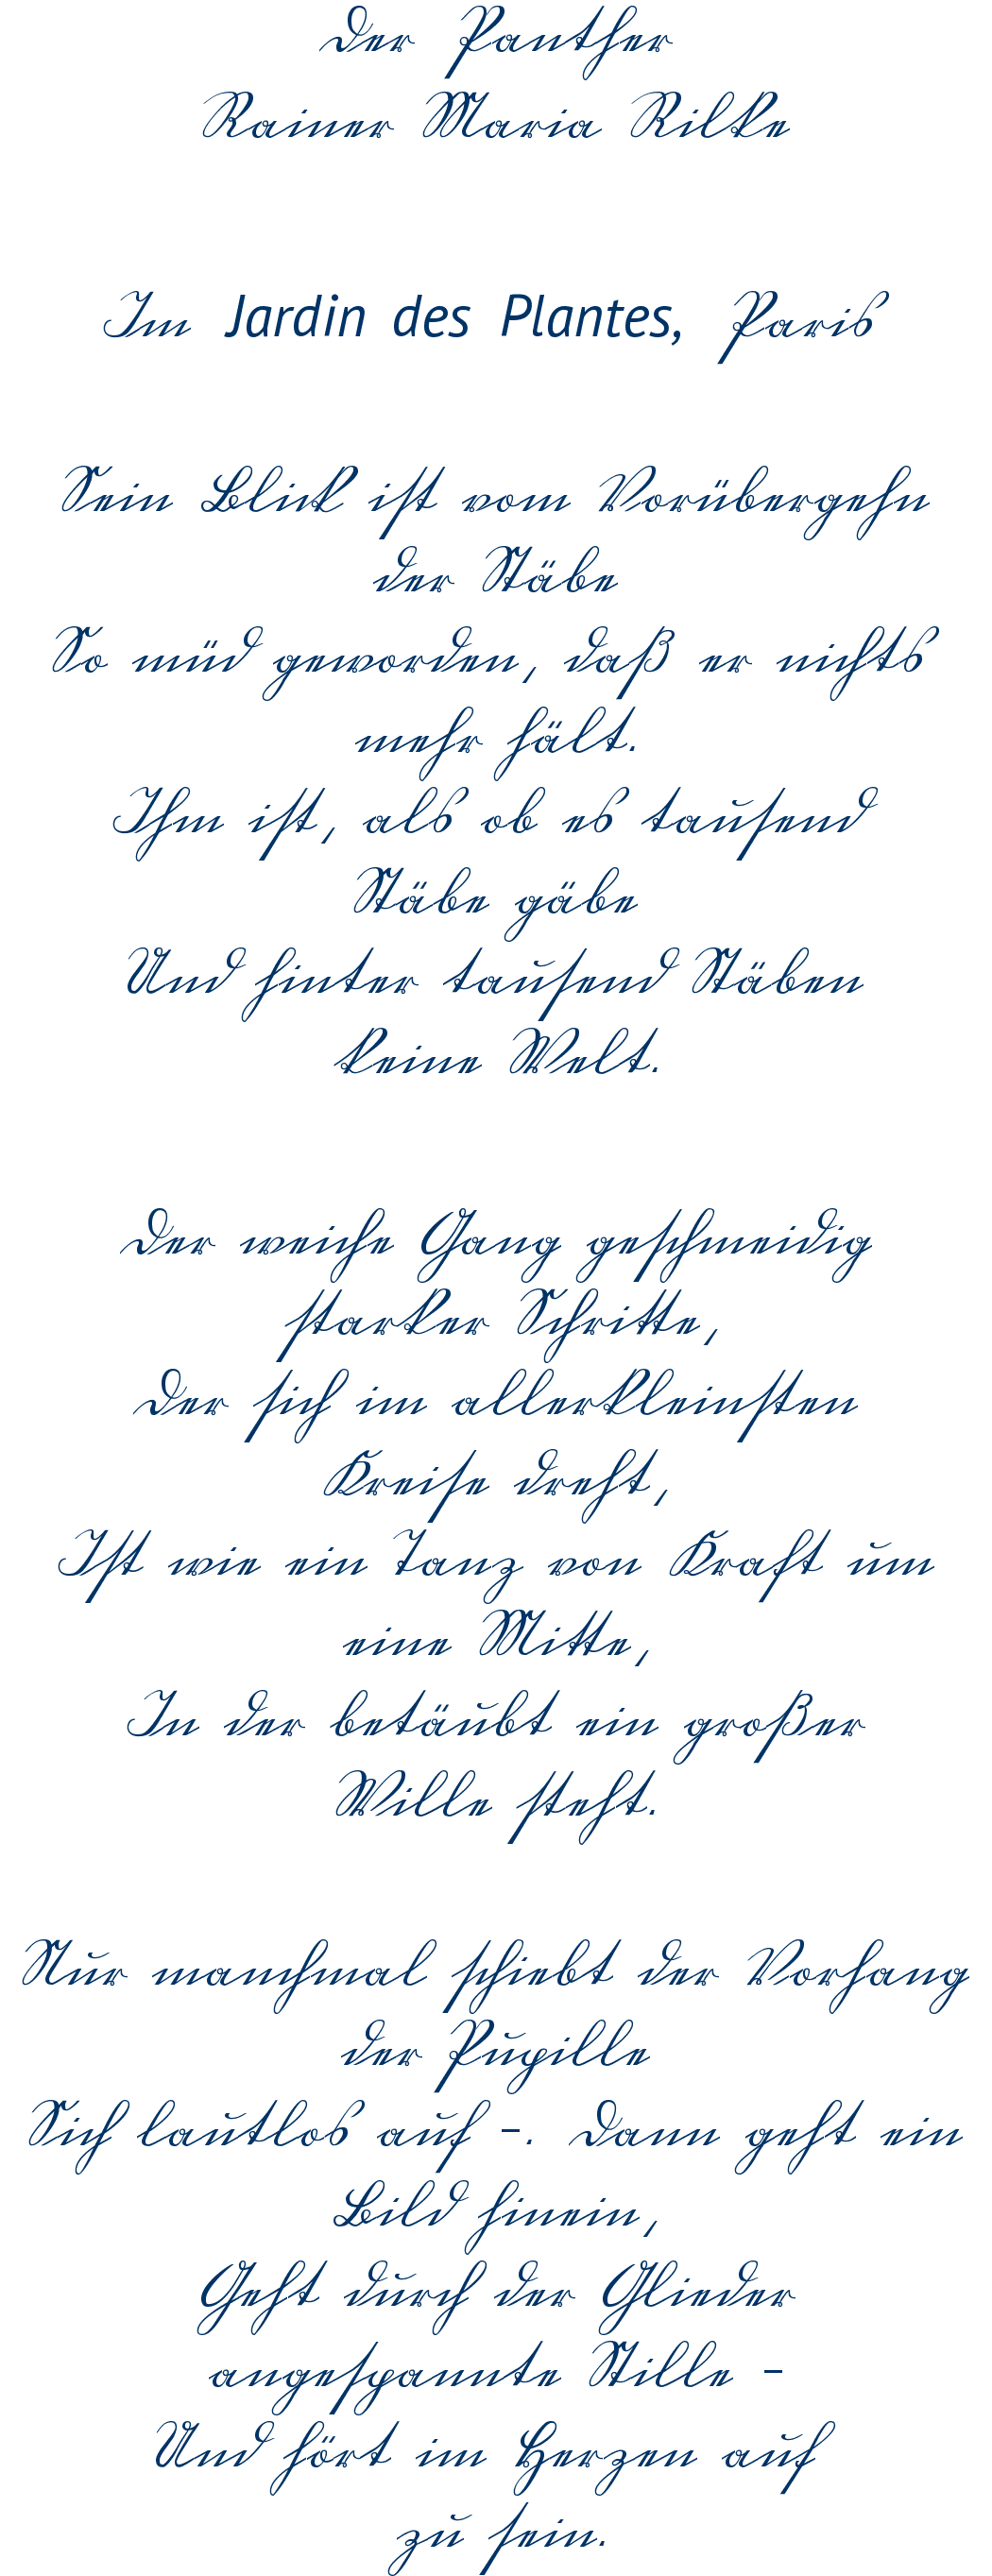 Der Panther
Rainer Maria Rilke
Im Jardin des Plantes, Paris
Sein Blick ist vom Vorübergehn
der Stäbe
So müd geworden, daß er nichts
mehr hält.
Ihm ist, als ob es tausend
Stäbe gäbe
Und hinter tausend Stäben
keine Welt.
Der weiche Gang geschmeidig
starker Schritte,
Der sich im allerkleinsten
Kreise dreht,
Ist wie ein Tanz von Kraft um
eine Mitte,
In der betäubt ein großer
Wille steht.
Nur manchmal schiebt der Vorhang
der Pupille
Sich lautlos auf –. Dann geht ein
Bild hinein,
Geht durch der Glieder
angespannte Stille –
Und hört im Herzen auf
zu sein.